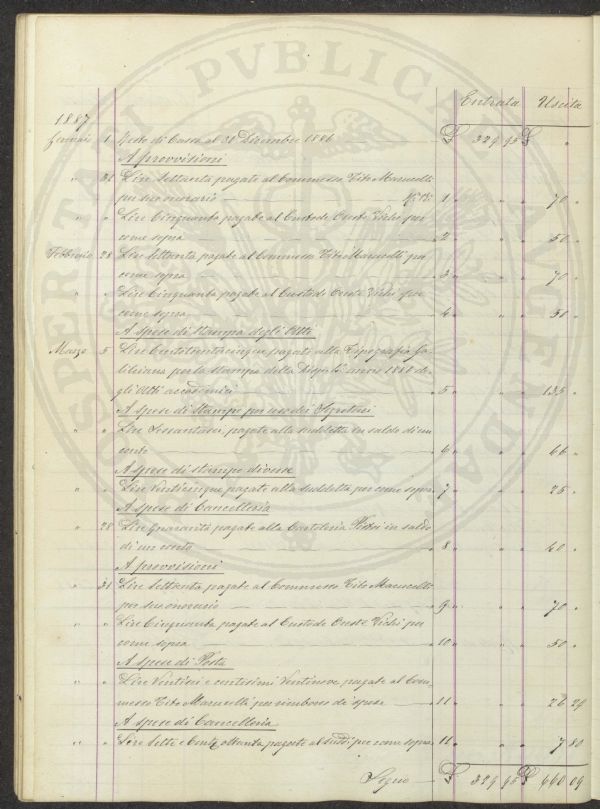 PROSPERITATI PVBLICAE AVGENDAE
Entrata Uscita
1887
Gennaio 1 Resto di Cassa al 31 Dicembre 1886 £ 329 95 £ "
A provvisioni
" 31 Lire Settanta pagate al Commesso Tito Marucelli
per suo onorario 1 " " " 70 "
" " Lire Cinquanta pagate al Custode Oreste Vichi per
come sopra 2 " " " 50 "
Febbraio 28 Lire Settanta pagate al Commesso Tito Marucelli per
come sopra 3 " " " 70 "
" " Lire Cinquanta pagate al Custode Oreste Vichi per
come sopra 4 " " " 50 "
A spese di Stampa degli Atti
Marzo 5 Lire Centotrentacinque pagate alla Tipografia Ga-
lileiana per la stampa della anno 1886 de-
gli Atti accademici 5 " " " 135 "
A spese di Stampe per uso dei Segretari
" " Lire Sessantasei pagate alla suddetta in saldo di un
conto 6 " " " 66 "
A spese di stampe diverse
" " Lire Venticinque pagate alla suddetta per come sopra 7 " " " 25 "
A spese di Cancelleria
" 28 Lire Quaranta pagate alla Cartoleria Pistoi in saldo
di un conto 8 " " " 40 "
A provvisioni
" 31 Lire Settanta pagate al Commesso Tito Marucelli
per suo onorario 9 " " " 70 "
" " Lire Cinquanta pagate al Custode Oreste Vichi per
come sopra 10 " " " 50 "
A spese di Posta
" " Lire Ventisei e centesimi Ventinove pagate al Com-
messo Tito Marucelli per rimborso di spese 11 " " " 26 29
A spese di Cancelleria
" " Lire Sette e Cent. ottanta pagate al sudd. per come sopra 11 " " " 7 80
Segue £ 329 95 £ 660 09